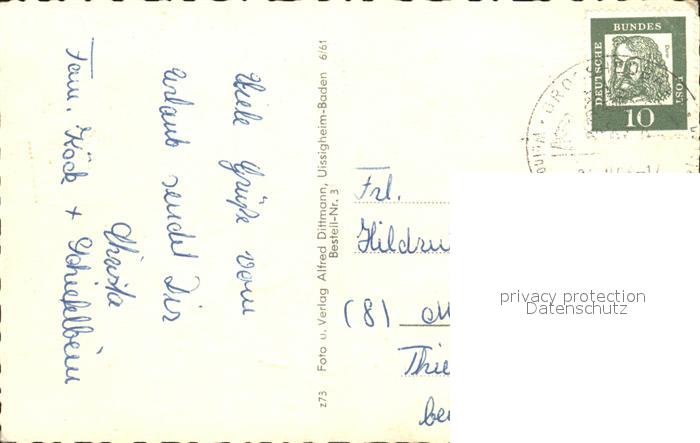 Viele Grüße vom
Urlaub sendet Dir
Christa
Fam. Köck + Schiefelbein
z73 Foto u. Verlag Alfred Dittmann, Uissigheim-Baden 6/61
Bestell-Nr. 3
DEUTSCHE
BUNDES
POST
Dürer
10
Frl.
(8)
privacy protection
Datenschutz